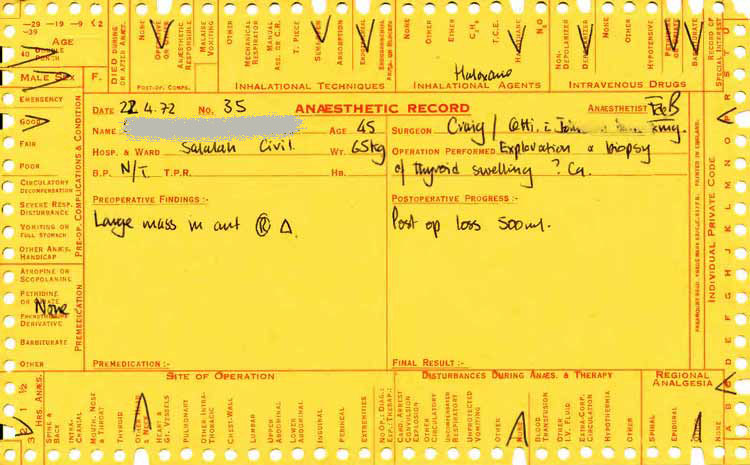 -29 -19 -9 2
-39
AGE
40 DOUBLE PUNCH
MALE SEX F.
DIED DURING OR AFTER ANÆST.
NONE
OPERATIVE
ANÆSTHETIC RESPONSIBLE
MALAISE VOMITING
OTHER
POST-OP. COMPS.
NONE
MECHANICAL RESPIRATOR
MANUAL ASS. OR C.R.
T. PIECE
ABSORPTION
INHALATIONAL TECHNIQUES
NONE
OTHER
ETHER
C₃H₆
T.C.E.
HALOTHANE
N₂O
Haloxane
INHALATIONAL AGENTS
NONE
NON-DEPOLARIZER
DEPOLARIZER
OTHER
HYPOTENSIVE
BARBITURATE
INTRAVENOUS DRUGS
RECORD OF SPECIAL INTEREST
EMERGENCY
GOOD
FAIR
POOR
CIRCULATORY DECOMPENSATION
SEVERE RESP. DISTURBANCE
VOMITING OR FULL STOMACH
OTHER ANÆS. HANDICAP
PRE-OP. COMPLICATIONS & CONDITION
ATROPINE OR SCOPOLAMINE
PETHIDINE OR OPIATE
None
PHENOTHIAZINE DERIVATIVE
BARBITURATE
OTHER
PREMEDICATION
DATE 22.4.72 NO. 35 ANÆSTHETIC RECORD ANÆSTHETIST
NAME AGE 45 SURGEON Craig /
HOSP. & WARD Salalah Civil WT. 65kg OPERATION PERFORMED Exploration & biopsy
B.P. N/T T.P.R. HB. of thyroid swelling ? Ca.
PREOPERATIVE FINDINGS:- POSTOPERATIVE PROGRESS:-
Large mass in ant Ⓡ Δ. Post op loss 500ml.
PREMEDICATION:- FINAL RESULT:-
INDIVIDUAL PRIVATE CODE
SITE OF OPERATION
DISTURBANCES DURING ANÆS. & THERAPY
REGIONAL ANALGESIA
3 2 1 ½
HRS. ANÆS.
SPINE & BACK
INTRA-CRANIAL
MOUTH, NOSE & THROAT
THYROID
OTHER HEAD & NECK
HEART & GT. VESSELS
PULMONARY
OTHER INTRA-THORACIC
CHEST-WALL
LUMBAR
UPPER ABDOMINAL
LOWER ABDOMINAL
INGUINAL
PERINEAL
EXTREMITIES
NO OP.: DIAG.: EX.: THERAP.:
CARD. ARREST CONVULSION EXPLOSION
OTHER CIRCULATORY
UNCOMPENSATED RESPIRATORY
UNPROTECTED VOMITING
OTHER
NONE
BLOOD TRANSFUSION
OTHER I.V. FLUID
EXTRA-CORP. CIRCULATION
HYPOTHERMIA
OTHER
SPINAL
EPIDURAL